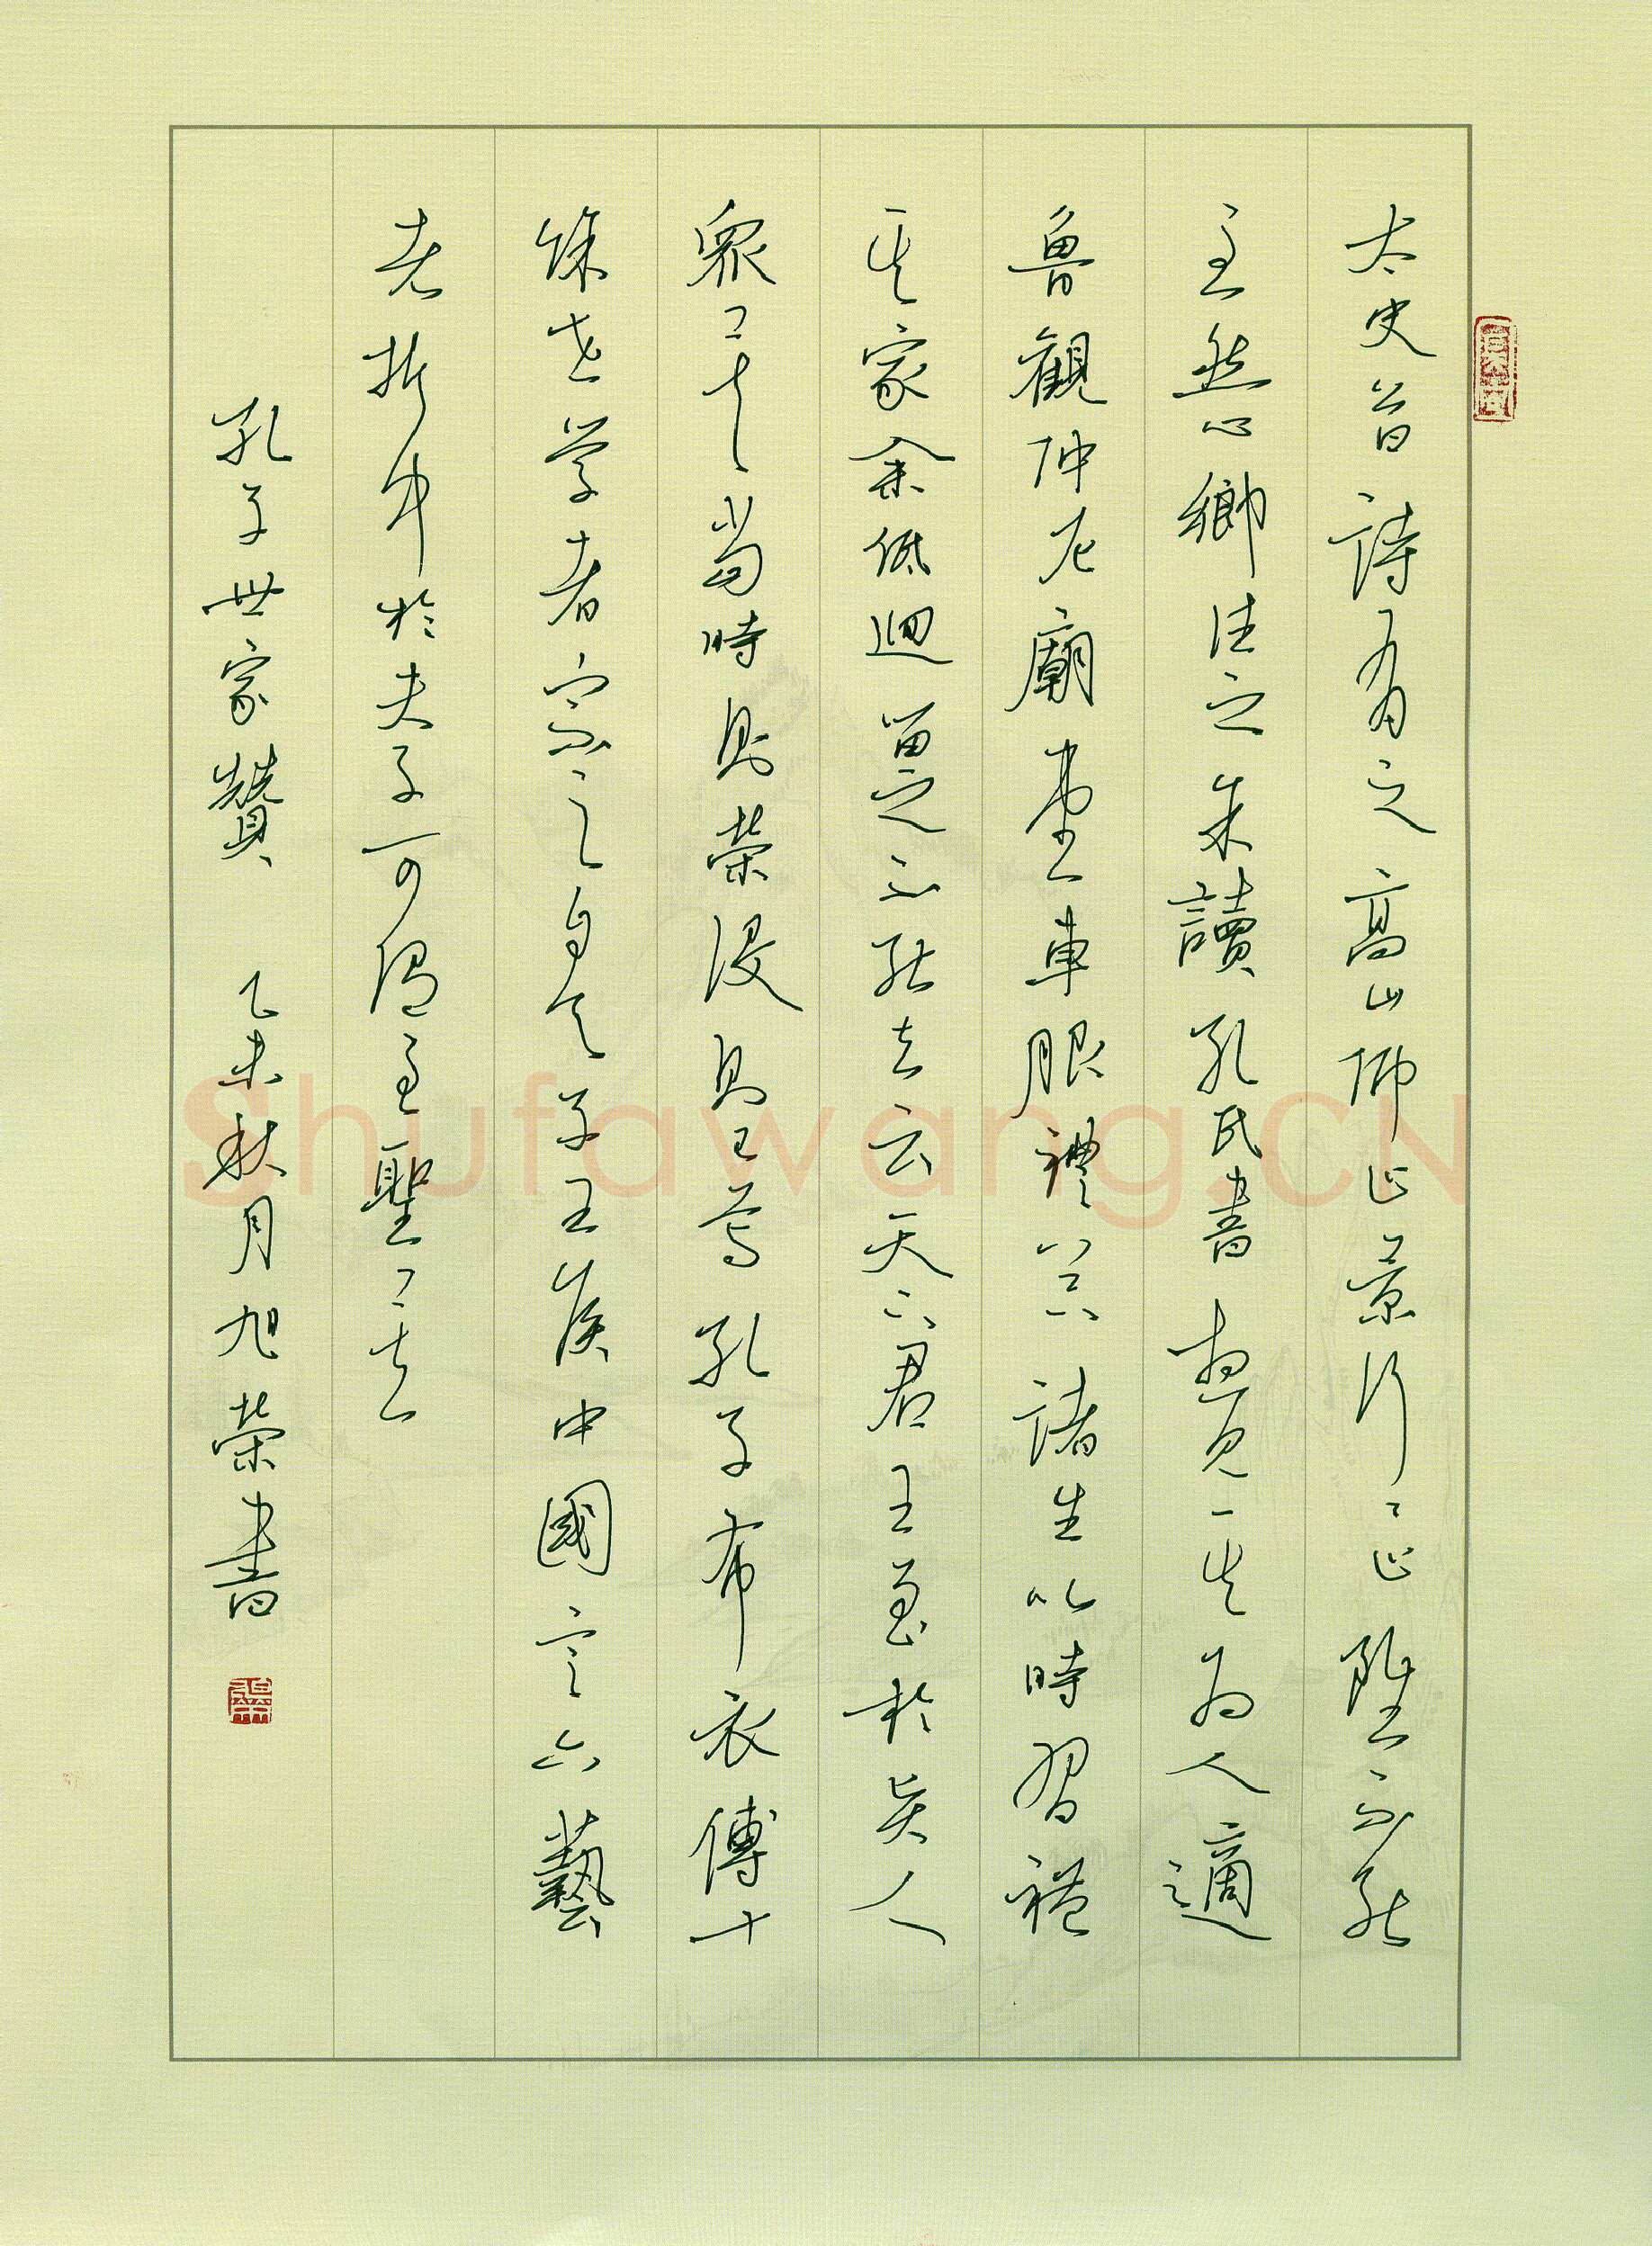 太史公曰詩有之高山仰止景行々止雖不能
至然心鄉往之余讀孔氏書想見其為人適
魯觀仲尼廟堂車服禮器諸生以時習禮
其家余低迴留之不能去云天下君王至於賢人
眾矣當時則榮沒則已焉孔子布衣傳十
餘世學者宗之自天子王侯中國言六藝
者折中於夫子可謂至聖矣
孔子世家贊 乙未秋月旭榮書
Shufawang.CN